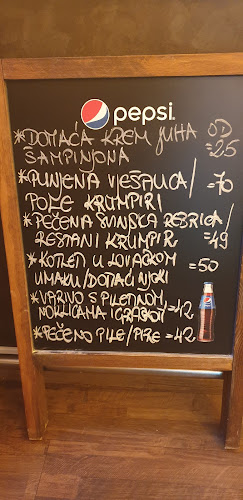 pepsi.
*DOMAĆA KREM JUHA OD
ŠAMPINJONA =25
*PUNJENA VJEŠALICA/ =70
POLE KRUMPIRI
*PEČENA SVINJSKA REBRICA/
RESTANI KRUMPIR =49
*KOTLET U LOVAČKOM =50
UMAKU/DOMAĆI NJOKI
*VARIVO S PILETINOM,
NOKLICAMA I GRAŠKOM =42
*PEČENO PILE/PIRE =42